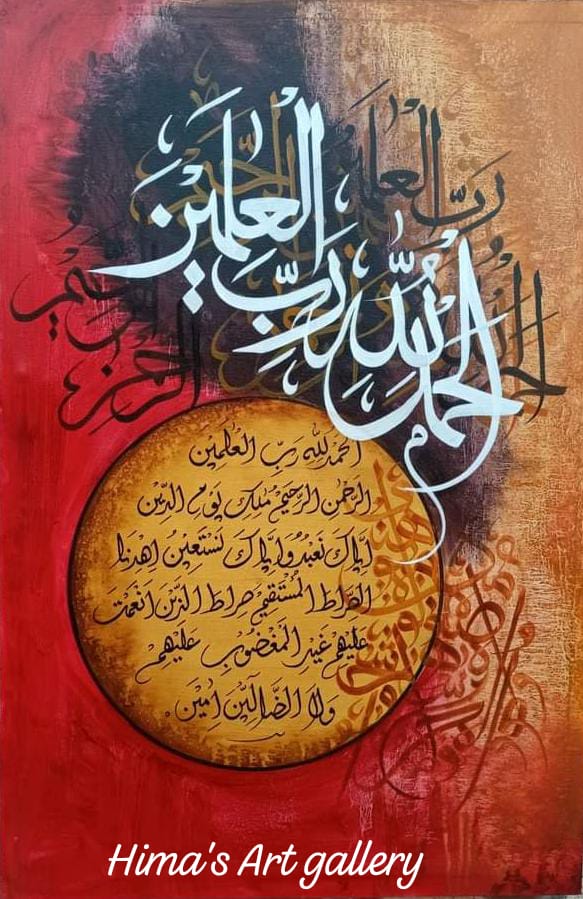 الحمد لله رب العلمين
رب العلمين
الرحمن
الرحيم
الحمد لله رب العلمين
الرحمن الرحيم ملك يوم الدين
اياك نعبد واياك نستعين اهدنا
الصراط المستقيم صراط الذين انعمت
عليهم غير المغضوب عليهم
ولا الضالين امين
Hima's Art gallery